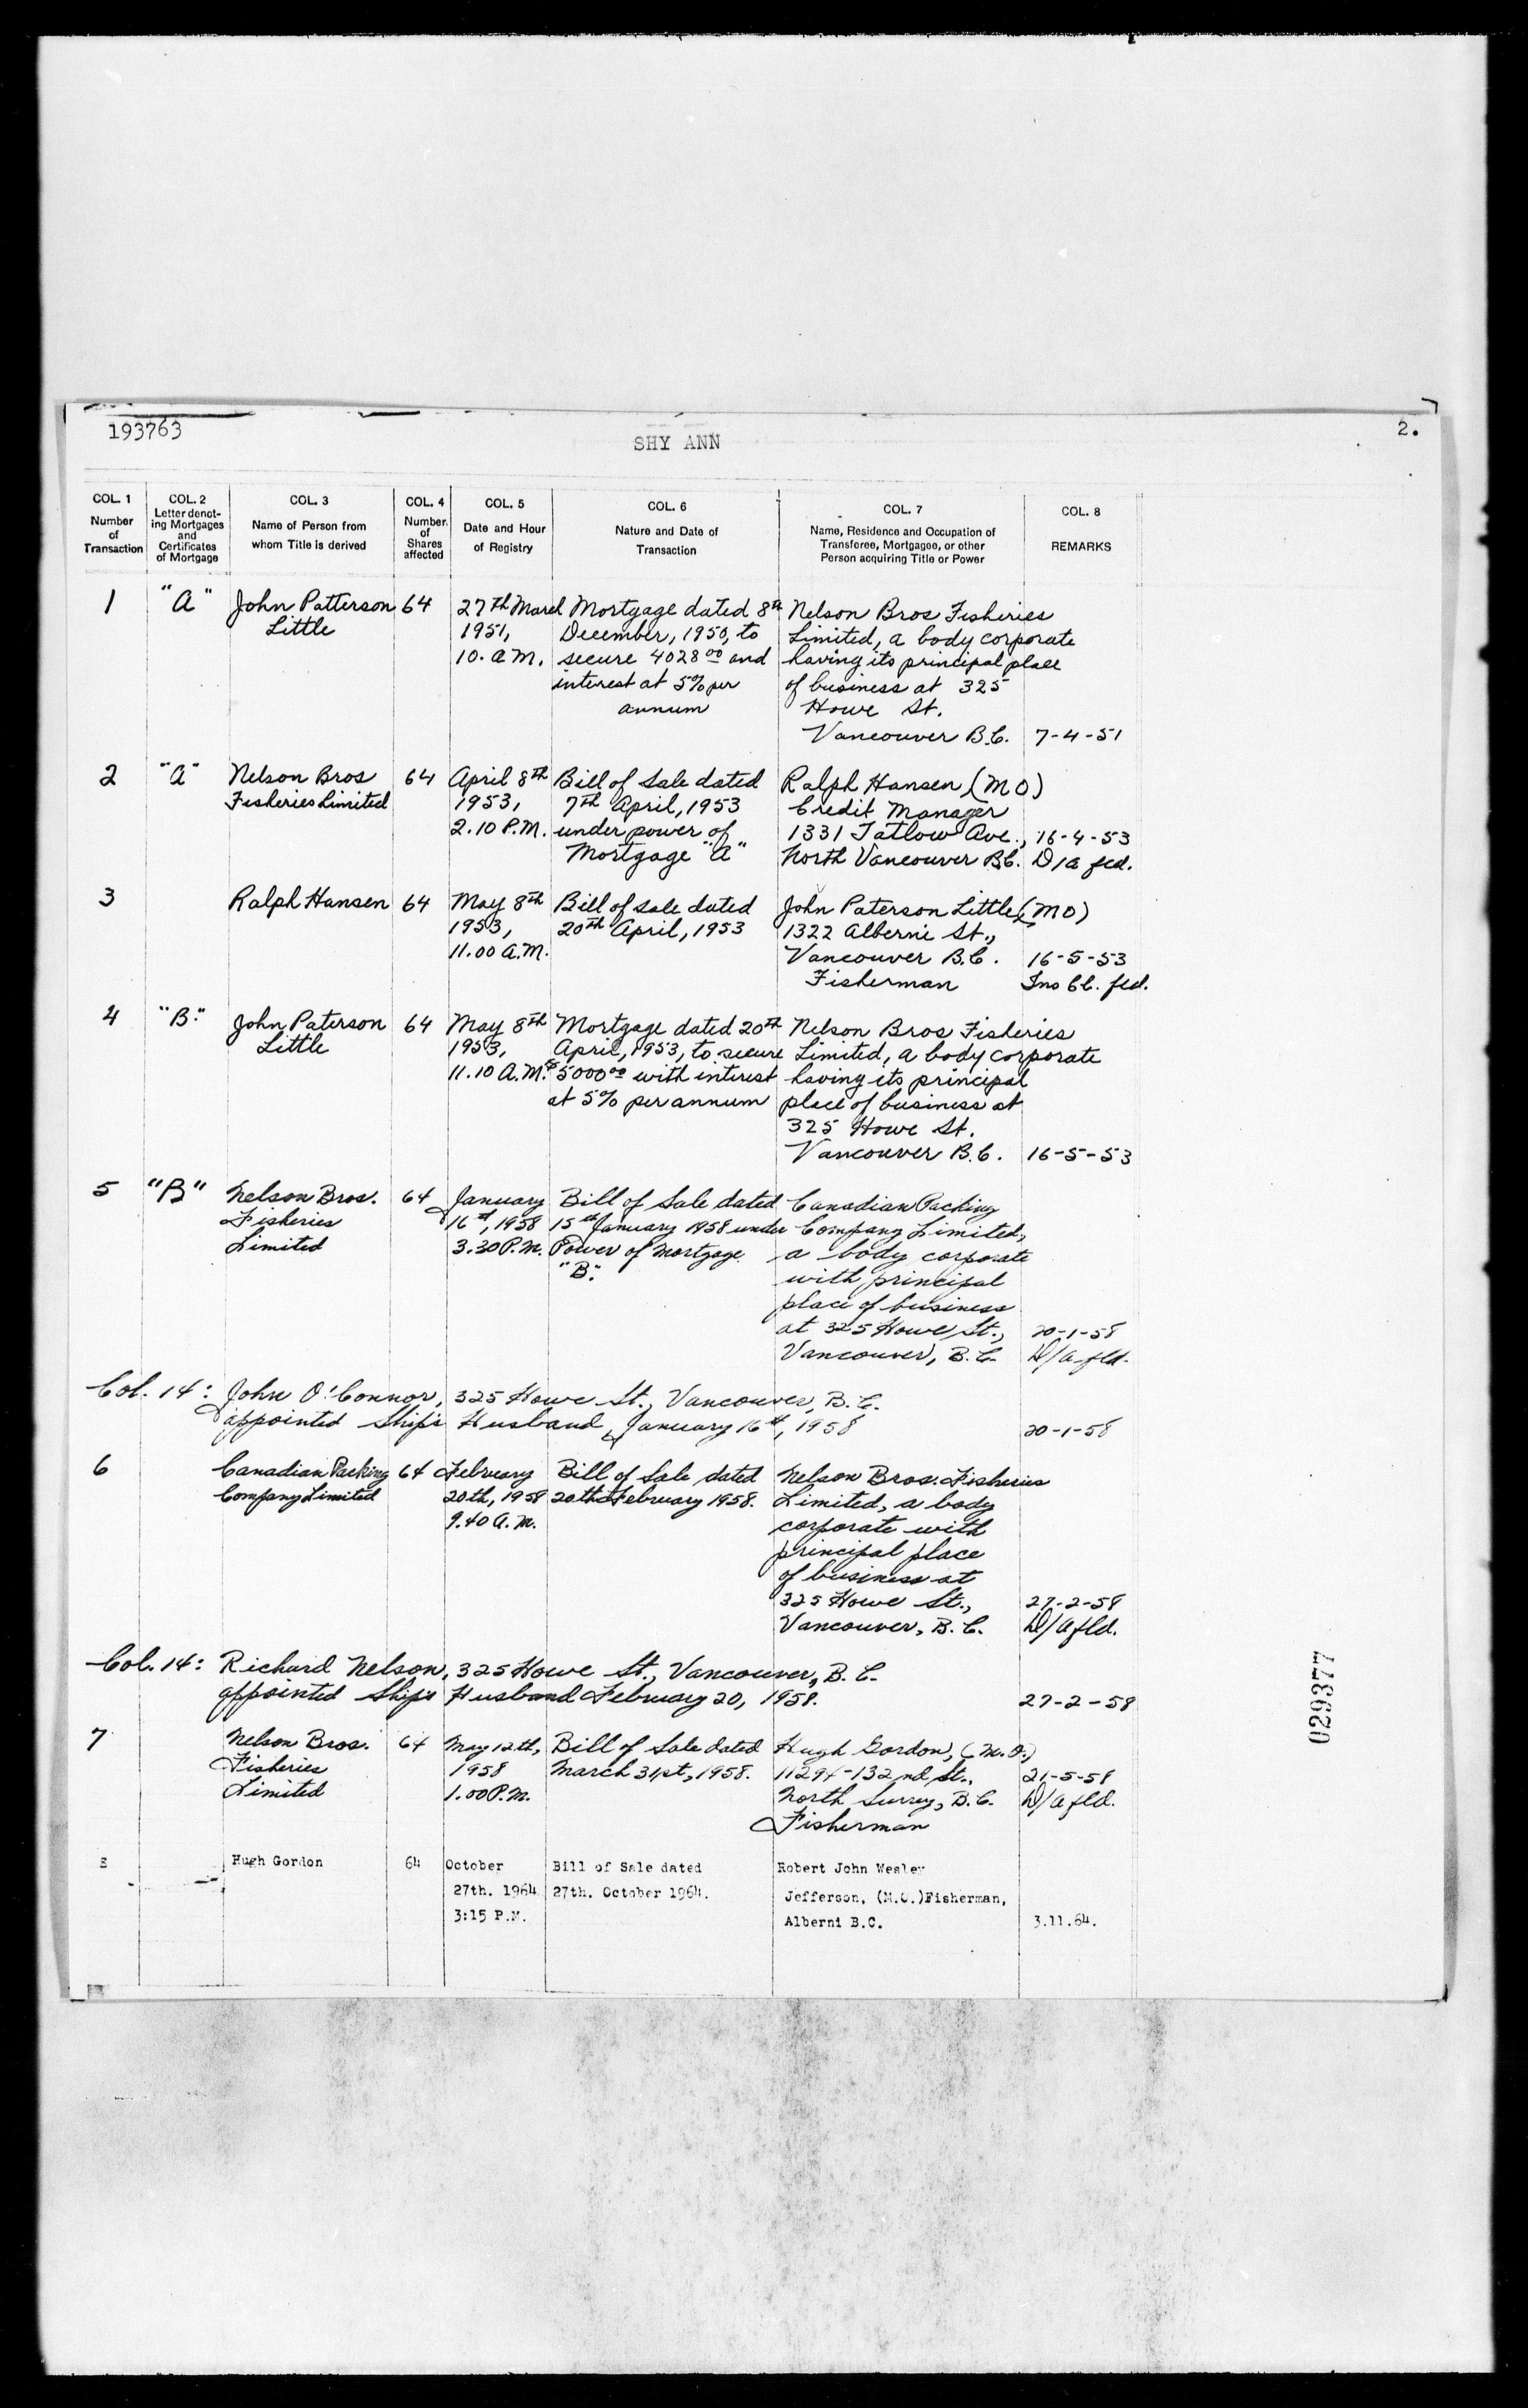 193763
SHY ANN
2.
COL. 1
Number
of
Transaction
COL. 2
Letter denot-
ing Mortgages
and
Certificates
of Mortgage
COL. 3
Name of Person from
whom Title is derived
COL. 4
Number
of
Shares
affected
COL. 5
Date and Hour
of Registry
COL. 6
Nature and Date of
Transaction
COL. 7
Name, Residence and Occupation of
Transferee, Mortgagee, or other
Person acquiring Title or Power
COL. 8
REMARKS
1
"A"
John Patterson
Little
64
27th March
1951,
10. A.M.
Mortgage dated 8th
December, 1950, to
secure 4028 00 and
interest at 5% per
annum
Nelson Bros Fisheries
Limited, a body corporate
having its principal place
of business at 325
Howe St.
Vancouver B.C.
7-4-51
2
"A"
Nelson Bros
Fisheries Limited
64
April 8th
1953,
2.10 P.M.
Bill of Sale dated
7th April, 1953
under power of
Mortgage "A"
Ralph Hansen (MO)
Credit Manager
1331 Tatlow Ave.,
North Vancouver B.C.
16-4-53
D/A fld.
3
Ralph Hansen
64
May 8th
1953,
11.00 A.M.
Bill of Sale dated
20th April, 1953
John Paterson Little (MO)
1322 Alberni St.,
Vancouver B.C.
Fisherman
16-5-53
Ino Cl. fld.
4
"B."
John Paterson
Little
64
May 8th
1953,
11.10 A.M.
Mortgage dated 20th
April, 1953, to secure
$5000 00 with interest
at 5% per annum
Nelson Bros Fisheries
Limited, a body corporate
having its principal
place of business at
325 Howe St.
Vancouver B.C.
16-5-53
5
"B"
Nelson Bros.
Fisheries
Limited
64
January
16th, 1958
3.30 P.M.
Bill of Sale dated
15th January 1958 under
Power of Mortgage
"B".
Canadian Packing
Company Limited,
a body corporate
with principal
place of business
at 325 Howe St.,
Vancouver, B.C.
20-1-58
D/A fld.
Col. 14: John O'Connor, 325 Howe St., Vancouver, B.C.
appointed Ship's Husband, January 16th, 1958
20-1-58
6
Canadian Packing
Company Limited
64
February
20th, 1958
9.40 A.M.
Bill of Sale dated
20th February 1958.
Nelson Bros. Fisheries
Limited, a body
corporate with
principal place
of business at
325 Howe St.,
Vancouver, B.C.
27-2-58
D/A fld.
Col. 14: Richard Nelson, 325 Howe St., Vancouver, B.C.
appointed Ship's Husband February 20, 1958.
27-2-58
7
Nelson Bros.
Fisheries
Limited
64
May 12th,
1958
1.00 P.M.
Bill of Sale dated
March 31st, 1958.
Hugh Gordon, (M.O.)
11294-132nd St.,
North Surrey, B.C.
Fisherman
21-5-58
D/A fld.
8
Hugh Gordon
64
October
27th. 1964
3:15 P.M.
Bill of Sale dated
27th. October 1964.
Robert John Wesley
Jefferson, (M.O.)Fisherman,
Alberni B.C.
3.11.64.
029377